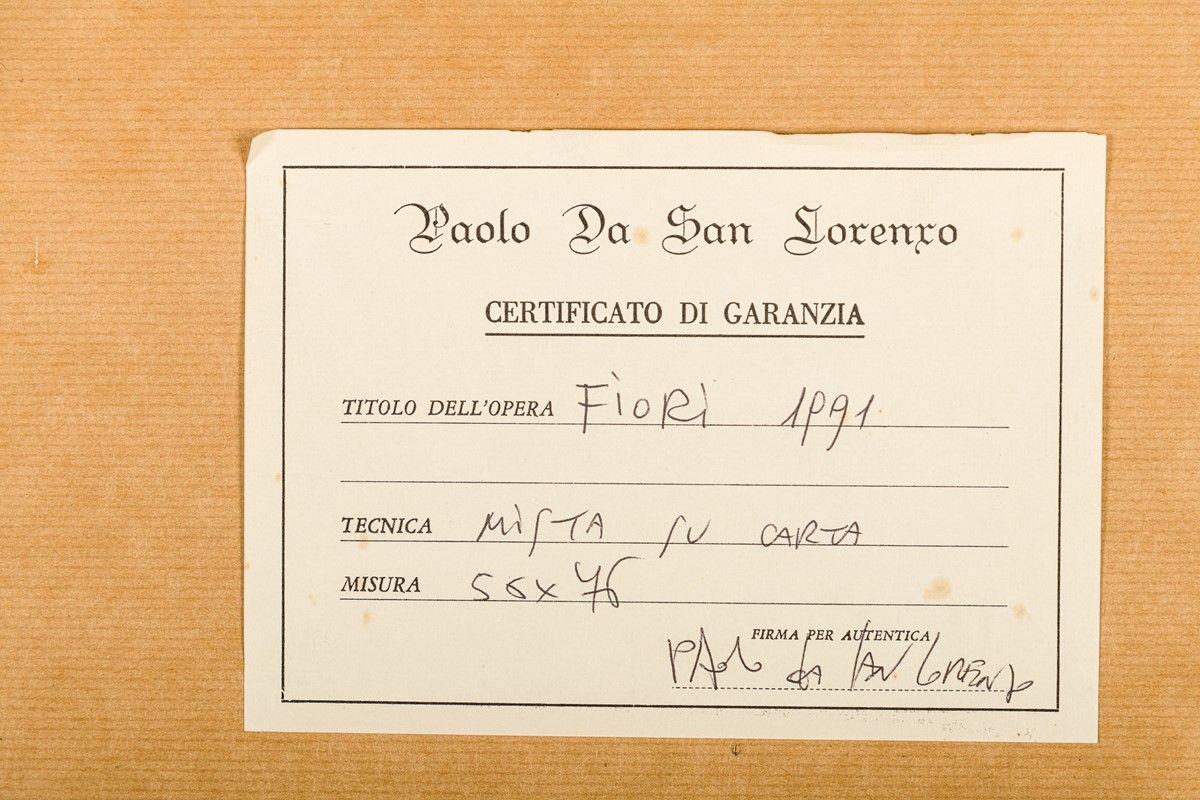 Paolo Da San Lorenzo
CERTIFICATO DI GARANZIA
TITOLO DELL'OPERA FiORi 1991
TECNICA MiSTA SU CARTA
MISURA 56x76
FIRMA PER AUTENTICA
PAolo dA SAN LORENzo